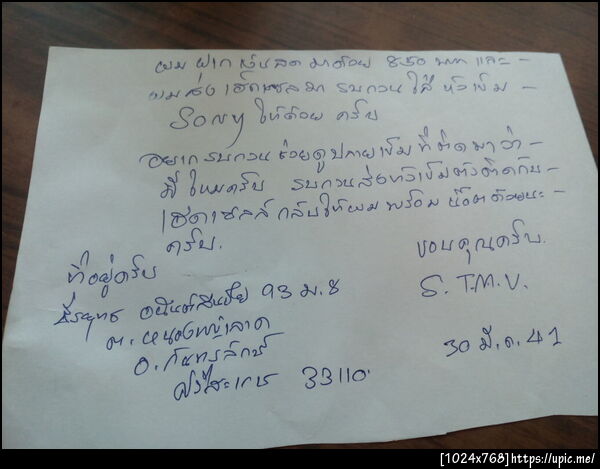 ผม ฝาก เงินสด มาด้วย 850 บาท และ -
ผมส่ง เฮดเชลมา รบกวน ใส่ หัวเข็ม -
Sony ให้ด้วย ครับ
อยาก รบกวน ช่วยดูปลายเข็ม ที่ติดมาว่า -
ดี ไหมครับ รบกวนส่งหัวเข็มตัวติดกับ
เฮดเชลล์ กลับให้ผม พร้อม น๊อตด้วยนะ -
ครับ.
ขอบคุณครับ.
S. T.M.V.
30 มี.ค. 41
ที่อยู่ครับ
93 ม. 8
ต. หนองหญ้าลาด
อ. กันทรลักษ์
ศรีสะเกษ 33110.
[1024x768]https://upic.me/